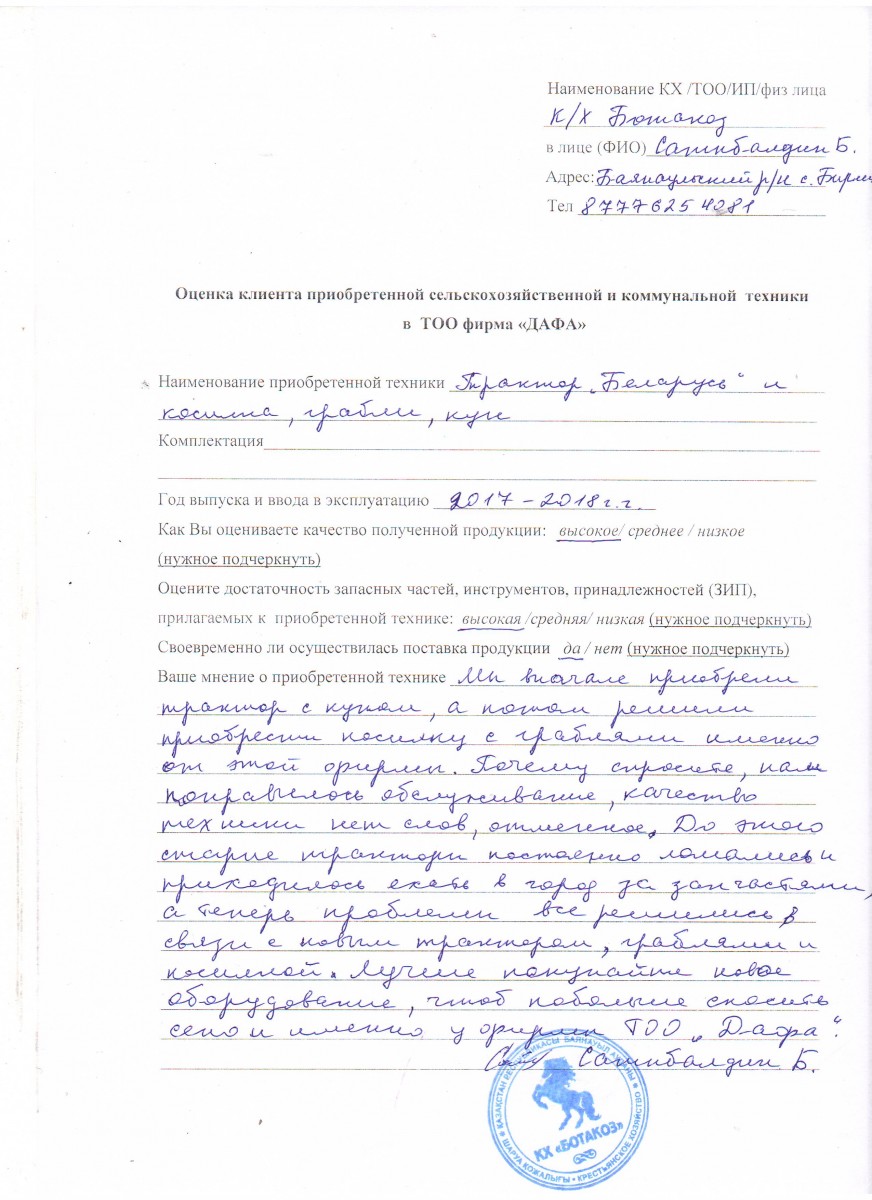 Наименование КХ /ТОО/ИП/физ лица
К/Х Ботакоз
в лице (ФИО) Сатыбалдин Б.
Адрес: Баянаульский р/н с.
Тел 87776254081
Оценка клиента приобретенной сельскохозяйственной и коммунальной техники
в ТОО фирма «ДАФА»
Наименование приобретенной техники Трактор „Беларусь“ и
косилка, грабли, кун
Комплектация
Год выпуска и ввода в эксплуатацию 2017-2018 г.г.
Как Вы оцениваете качество полученной продукции: высокое/ среднее / низкое
(нужное подчеркнуть)
Оцените достаточность запасных частей, инструментов, принадлежностей (ЗИП),
прилагаемых к приобретенной технике: высокая /средняя/ низкая (нужное подчеркнуть)
Своевременно ли осуществилась поставка продукции да / нет (нужное подчеркнуть)
Ваше мнение о приобретенной технике Мы вначале приобрели
трактор с куном, а потом решили
приобрести косилку с граблями именно
от этой фирмы. Почему спросите, нам
понравилось обслуживание, качество
техники нет слов, отличное. До этого
старые трактора постоянно ломались и
приходилось ехать в город за запчастями,
а теперь проблемы все решились в
связи с новым трактором, граблями и
косилкой. Лучше покупайте новое
оборудование, чтоб побольше скосить
сено и именно у фирмы ТОО „Дафа“.
Сатыбалдин Б.
ҚАЗАҚСТАН РЕСПУБЛИКАСЫ БАЯНАУЫЛ АУДАНЫ
КХ «БОТАКОЗ»
ШАРУА ҚОЖАЛЫҒЫ • КРЕСТЬЯНСКОЕ ХОЗЯЙСТВО